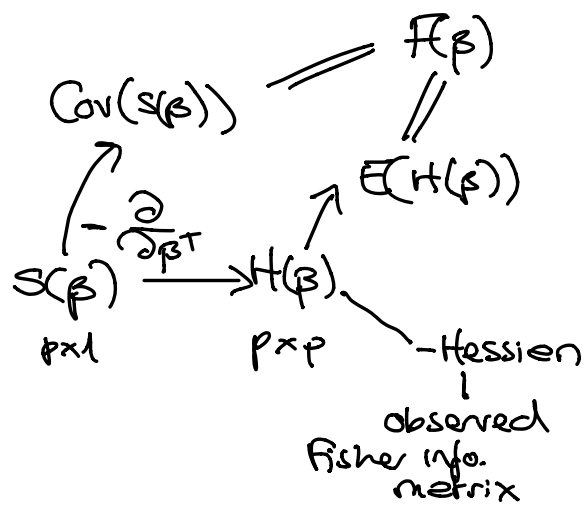 F(β)
Cov(S(β))
E(H(β))
- ∂/∂β^T
S(β)
H(β)
p×1
p×p
-Hessien
observed
Fisher info.
metrix